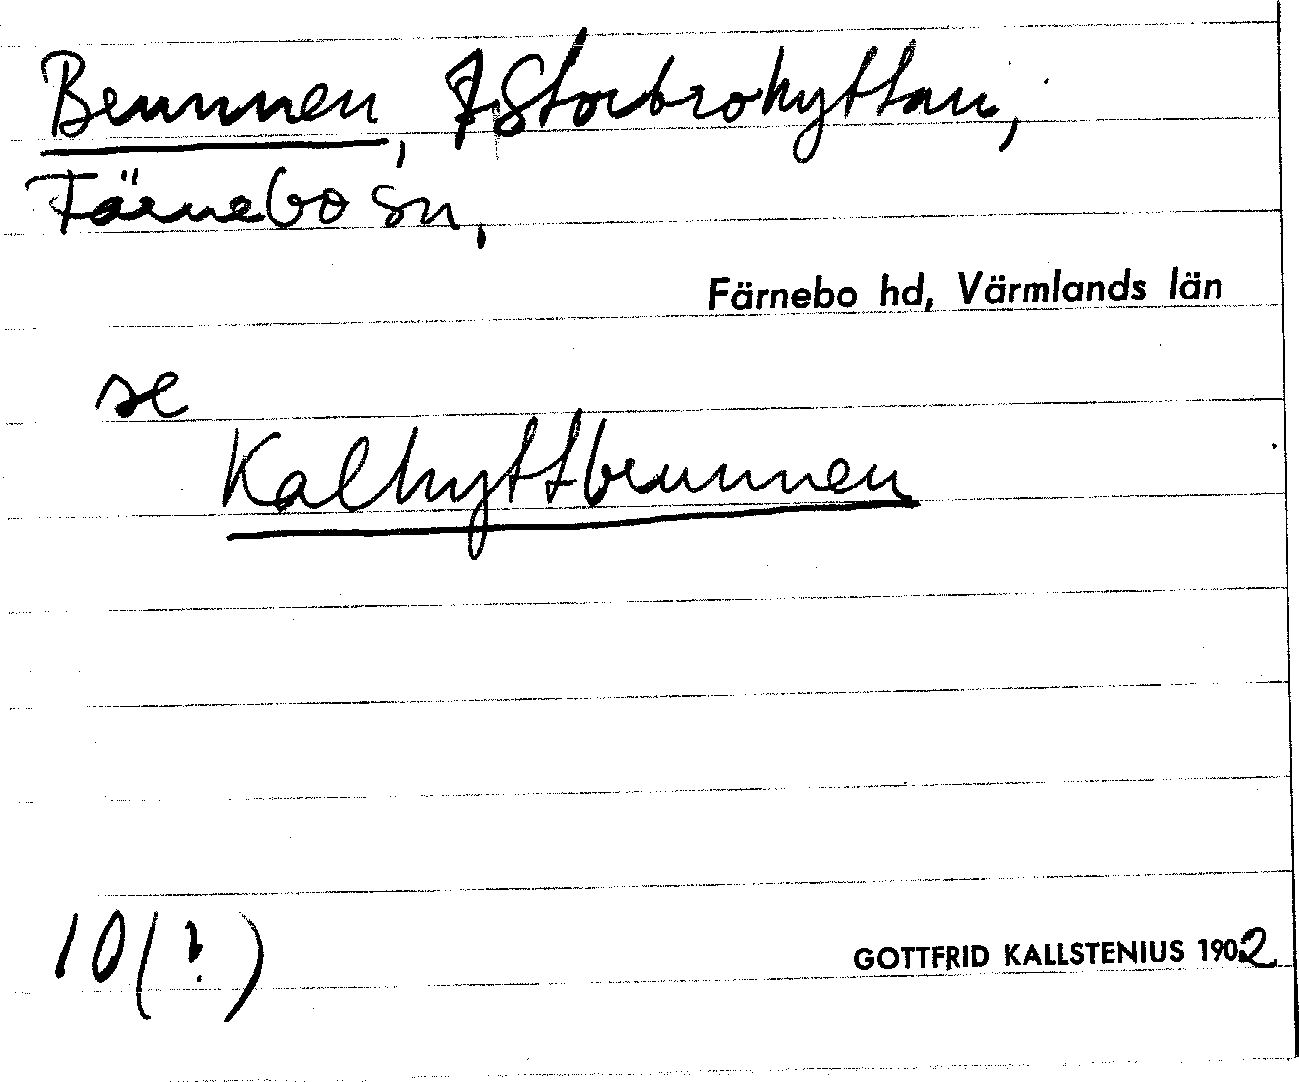 Brunnen, Storbrohyttan,
Färnebo sn,
Färnebo hd, Värmlands län
se
Kalhyttbrunnen
10(?)
GOTTFRID KALLSTENIUS 1902